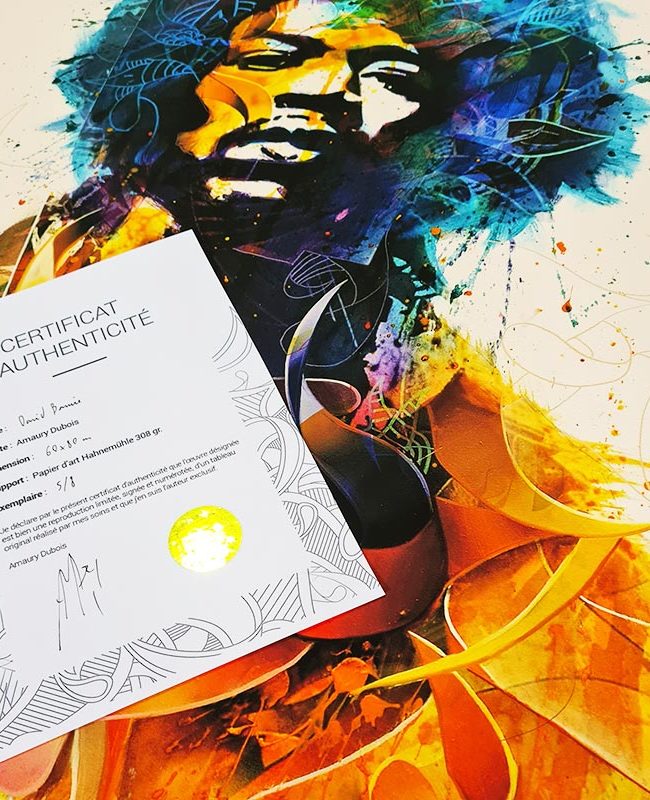 CERTIFICAT
AUTHENTICITÉ
: David Bowie
te : Amaury Dubois
mension : 60x80 cm
pport : Papier d'art Hahnemühle 308 gr.
xemplaire : 5/8
Je déclare par le présent certificat d'authenticité que l'œuvre désignée
est bien une reproduction limitée, signée et numérotée, d'un tableau
original réalisé par mes soins et que j'en suis l'auteur exclusif.
Amaury Dubois